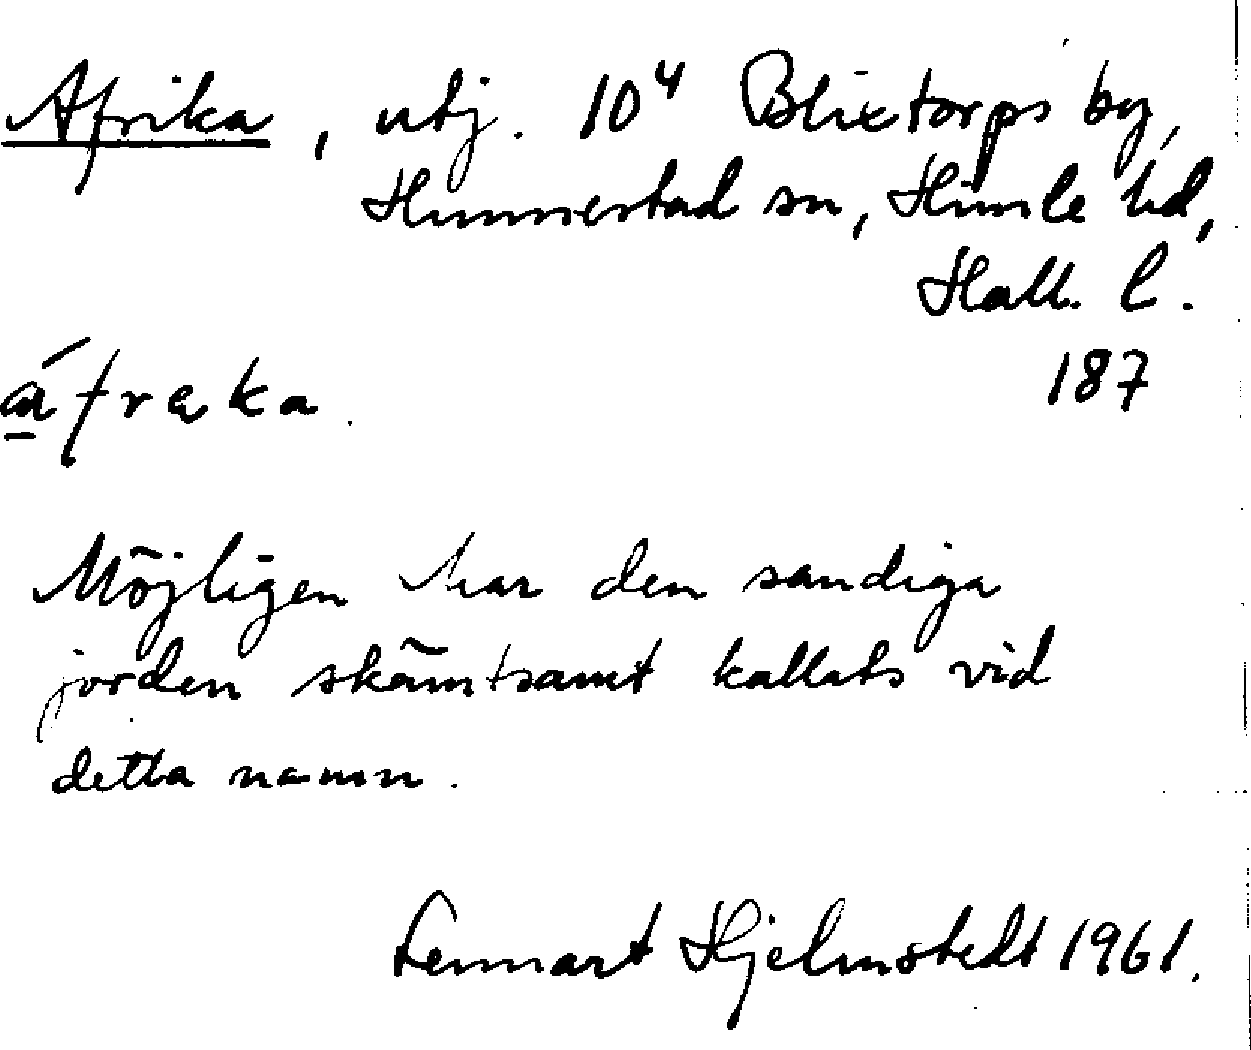 Afrika, utj. 10⁴ Blixtorps by,
Hunnestad sn, Himle hd,
Hall. l.
187
áfrəka.
Möjligen har den sandiga
jorden skämtsamt kallats vid
detta namn.
Lennart Hjelmstedt 1961.